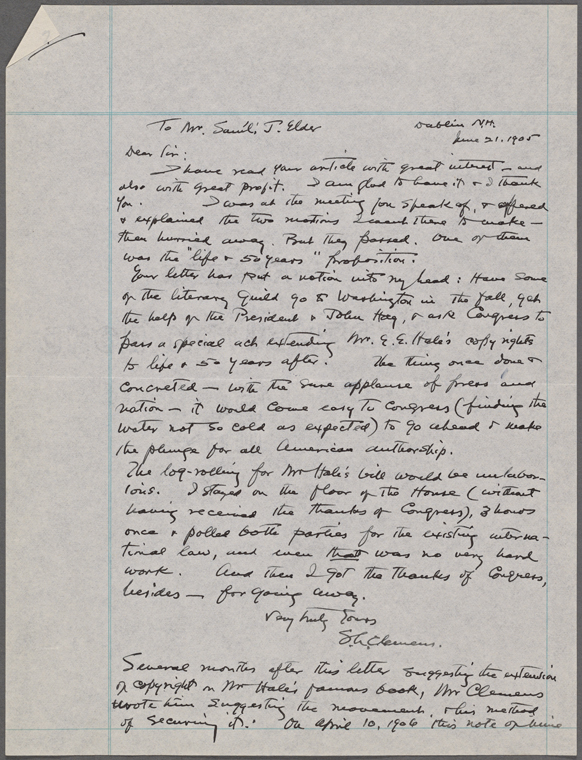 To Mr. Sam'l. J. Elder
Dublin N.H.
June 21. 1905
Dear Sir:
I have read your article with great interest — and
also with great profit. I am glad to have it & I thank
you. I was at the meeting you speak of, & offered
& explained the two motions I went there to make —
then hurried away. But they passed. One of them
was the "life & 50 years" proposition.
Your letter has put a notion into my head: Have some
of the literary Guild go to Washington in the fall, get
the help of the President & John Hay, & ask Congress to
pass a special act extending Mr. E. E. Hale's copyrights
to life & 50 years after. The thing once done &
concreted — with the sure applause of press and
nation — it would come easy to Congress (finding the
water not so cold as expected) to go ahead & make
the plunge for all American authorship.
The log-rolling for Mr Hale's bill would be unlabor-
ious. I stayed on the floor of the House (without
having received the thanks of Congress), 3 hours
once & polled both parties for the existing interna-
tional law, and even that was no very hard
work. And then I got the thanks of Congress,
besides — for going away.
Very truly yours
S. L. Clemens.
Several months after this letter suggesting the extension
of copyright on Mr Hale's famous book, Mr Clemens
wrote him suggesting the movement & his method
of securing it. On April 10, 1906 this note of mine